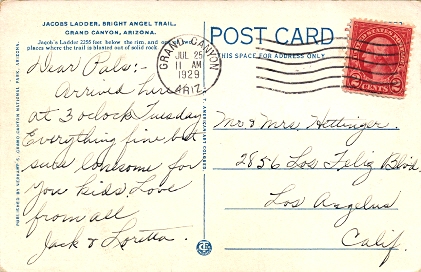 JACOBS LADDER, BRIGHT ANGEL TRAIL,
GRAND CANYON, ARIZONA.
Jacob's Ladder 2255 feet below the rim, and one
places where the trail is blasted out of solid rock.
Dear Pals:-
Arrived here
at 3 oclock Tuesday
Everything fine but
sure lonesome for
you kids. Love
from all
Jack & Loretta.
POST CARD
THIS SPACE FOR ADDRESS ONLY
GRAND CANYON
JUL 25
11 AM
1929
ARIZ.
UNITED STATES POSTAGE
2 CENTS 2
Mr & Mrs Hettinger.
2856 Los Feliz Blvd.
Los Angelus
Calif.